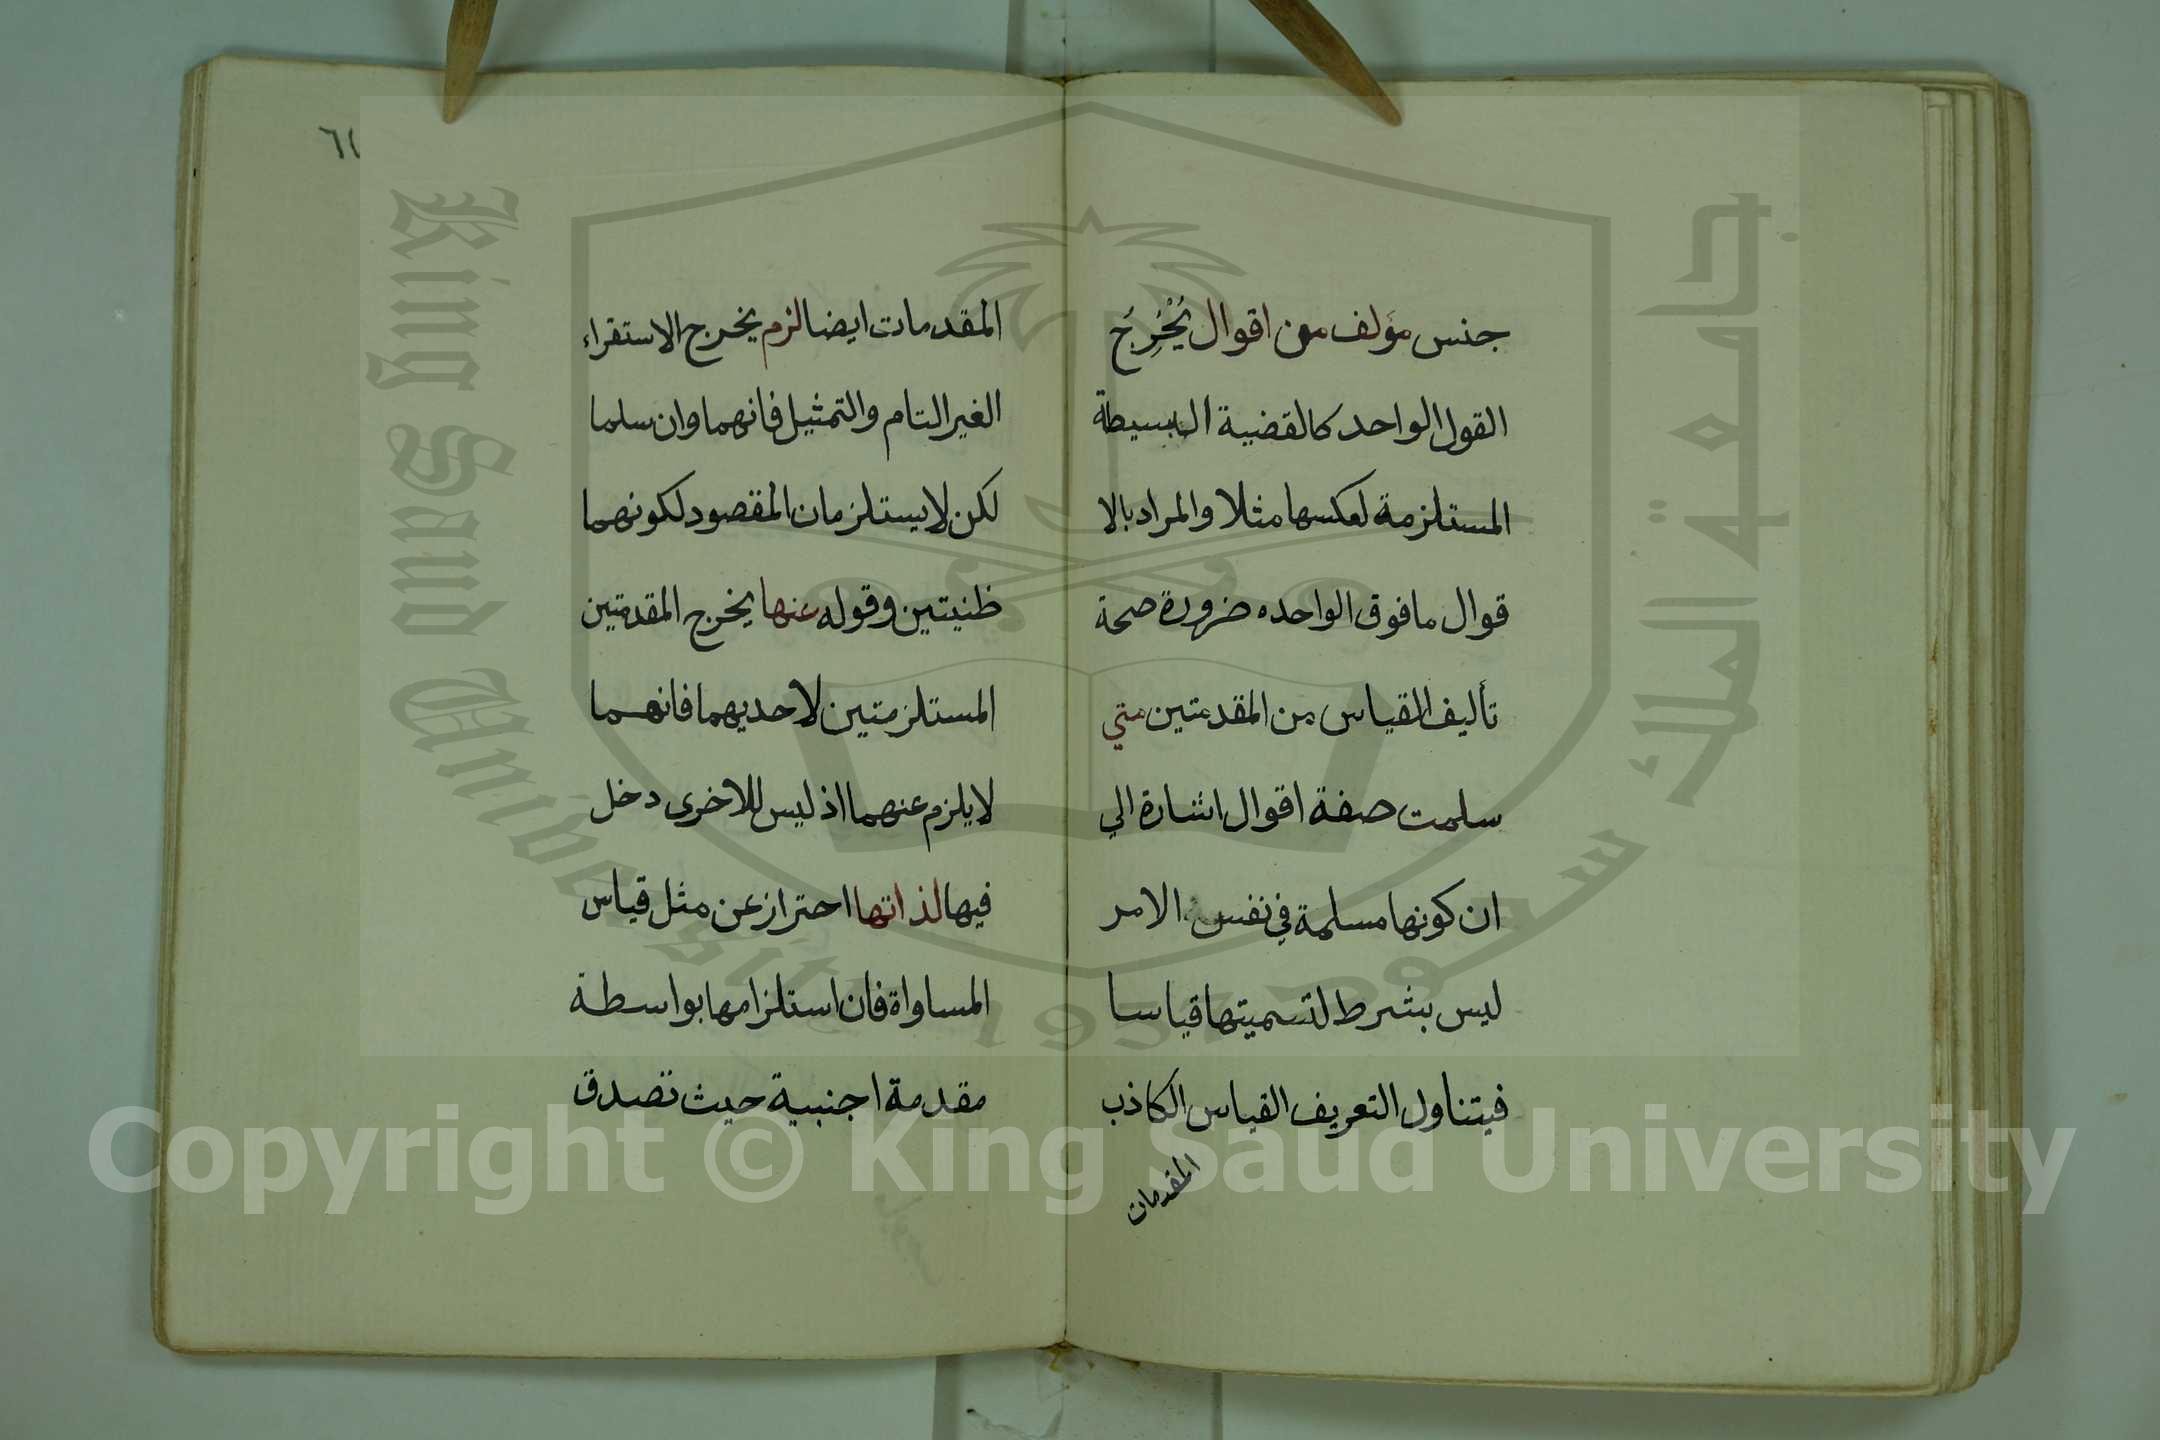 جنس مؤلف من اقوال يُخْرِجَ
القول الواحد كالقضية البسيطة
المستلزمة لعكسها مثلا والمراد بالا
قوال ما فوق الواحده ضرورة صحة
تأليف القياس من المقدمتين متي
سلمت صفة اقوال اشارة الي
ان كونها مسلمة في نفس الامر
ليس بشرط لتسميتها قياسا
فيتناول التعريف القياس الكاذب
المقدمات
٦١
المقدمات ايضا لزم يخرج الاستقراء
الغير التام والتمثيل فانهما وان سلما
لكن لا يستلزمان المقصود لكونهما
ظنيتين وقوله عنها يخرج المقدمتين
المستلزمتين لاحديهما فانهما
لا يلزم عنهما اذ ليس للاخرى دخل
فيها لذاتها احتراز عن مثل قياس
المساواة فان استلزامها بواسطة
مقدمة اجنبية حيث تصدق
King Saud University
جامعة الملك سعود
1957
Copyright © King Saud University